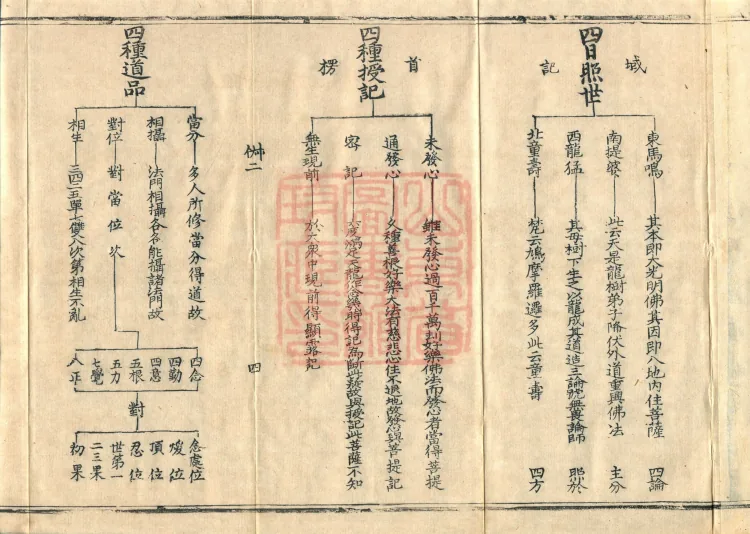 四日照世
域記
東馬鳴 其本即大光明佛其因即八地內住菩薩 四論
南提婆 此云天是龍樹弟子降伏外道重興佛法 主分
西龍猛 其母樹下生之以龍成其道造三論號無畏論師 照於
北童壽 梵云鳩摩羅邏多此云童壽 四方
四種授記
首楞
未發心 雖未發心過百千萬劫好樂佛法而發心者當得菩提
通發心 久種善根好樂大法有慈悲心住不退地故發心與菩提記
密記 天龍 得記為斷此疑故與授記此菩薩不知
無生現前 於大眾中現前得顯露記
二
四
四種道品
當分 多人所修當分得道故
相攝 法門相攝各各能攝諸法門故
對位 對當位次
相生 三四二五單七雙八次第相生不亂
四念
四勤
四意
五根
五力
七覺
八正
對
念處位
煖位
頂位
忍位
世第一
二三果
初果